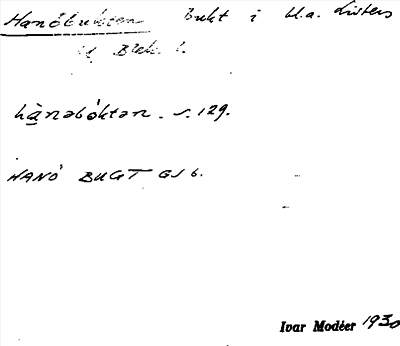 Hanöbukten Bukt i bl.a. Listers
hd, Blek. l.
hànəbóktən. s. 129.
HANÖ BUGT GS 6.
Ivar Modéer 1930